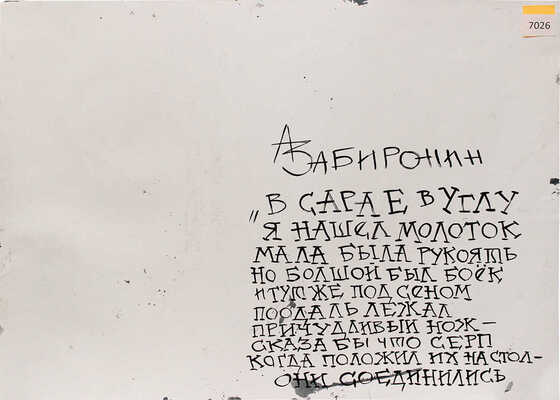 7026
А ЗАБИРОНИН
„В САРАЕ В УГЛУ
Я НАШЕЛ МОЛОТОК
МАЛА БЫЛА РУКОЯТЬ
НО БОЛШОЙ БЫЛ БОЁК
И ТУТ ЖЕ ПОД СЕНОМ
ПООДАЛЬ ЛЕЖАЛ
ПРИЧУДЛИВЫЙ НОЖ —
СКАЗАБЫ ЧТО СЕРП
КОГДА ПОЛОЖИЛ ИХ НА СТОЛ-
ОНИ СОЕДИНИЛИСЬ